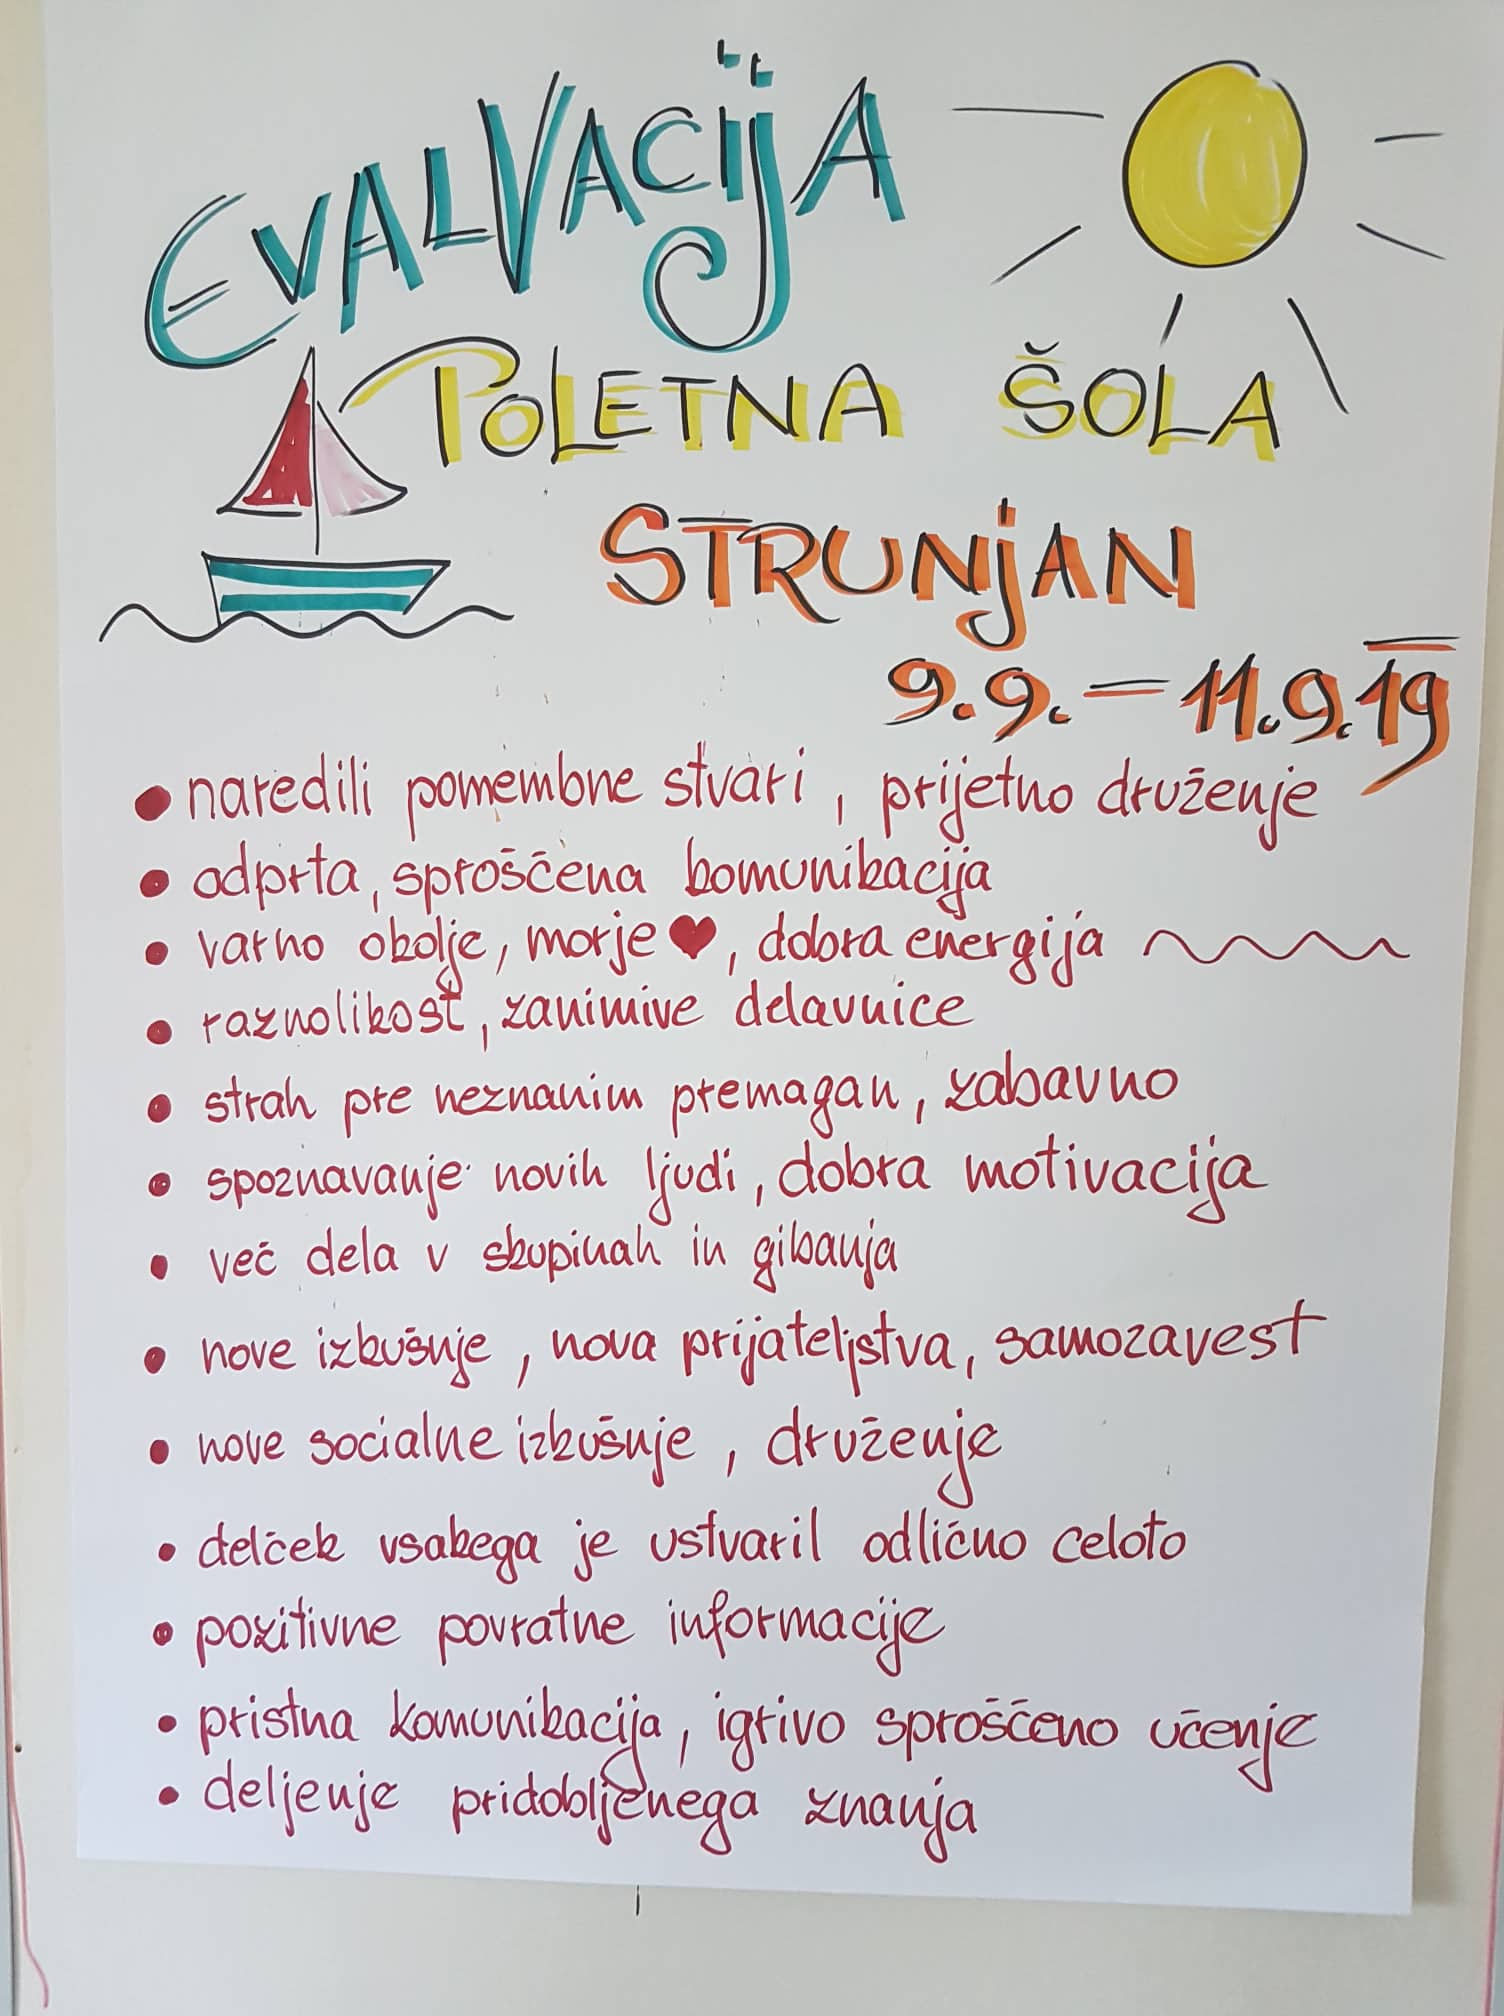 EVALVACIJA
POLETNA ŠOLA
STRUNJAN
9.9. – 11.9.19
• naredili pomembne stvari, prijetno druženje
• odprta, sproščena komunikacija
• varno okolje, morje ♥, dobra energija
• raznolikost, zanimive delavnice
• strah pre neznanim premagan, zabavno
• spoznavanje novih ljudi, dobra motivacija
• več dela v skupinah in gibanja
• nove izkušnje, nova prijateljstva, samozavest
• nove socialne izkušnje, druženje
• delček vsakega je ustvaril odlično celoto
• pozitivne povratne informacije
• pristna komunikacija, igrivo sproščeno učenje
• deljenje pridobljenega znanja